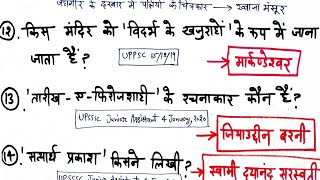 जहाँगीर के दरबार में पक्षियों के चित्रकार → उस्ताद मंसूर
(12). किस मंदिर को 'विदर्भ के खजुराहो' के रूप में जाना
जाता है? UPPSC 15/12/19 → मार्कण्डेश्वर
(13). 'तारीख-ए-फिरोजशाही' के रचनाकार कौन हैं?
UPSSSC Junior Assistant 4 January, 2020
→ जियाउद्दीन बरनी
(14). 'सत्यार्थ प्रकाश' किसने लिखी? → स्वामी दयानंद सरस्वती